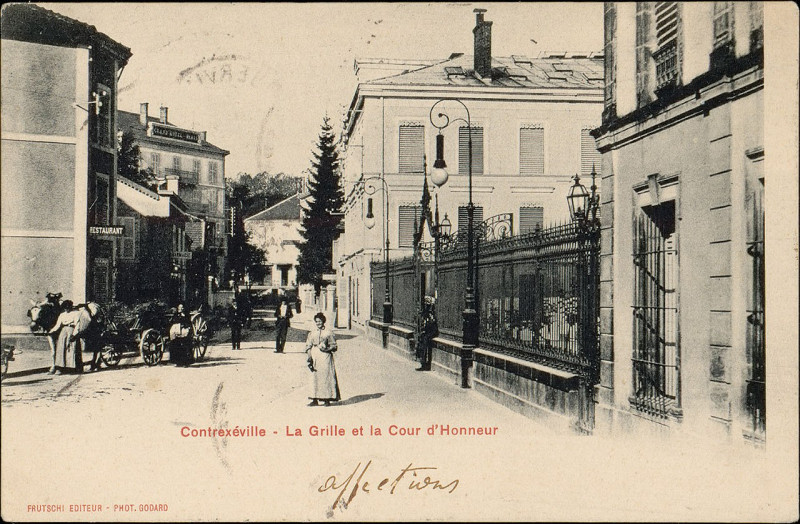 GRAND HOTEL
RESTAURANT
Contrexéville - La Grille et la Cour d'Honneur
affections
FRUTSCHI EDITEUR - PHOT. GODARD